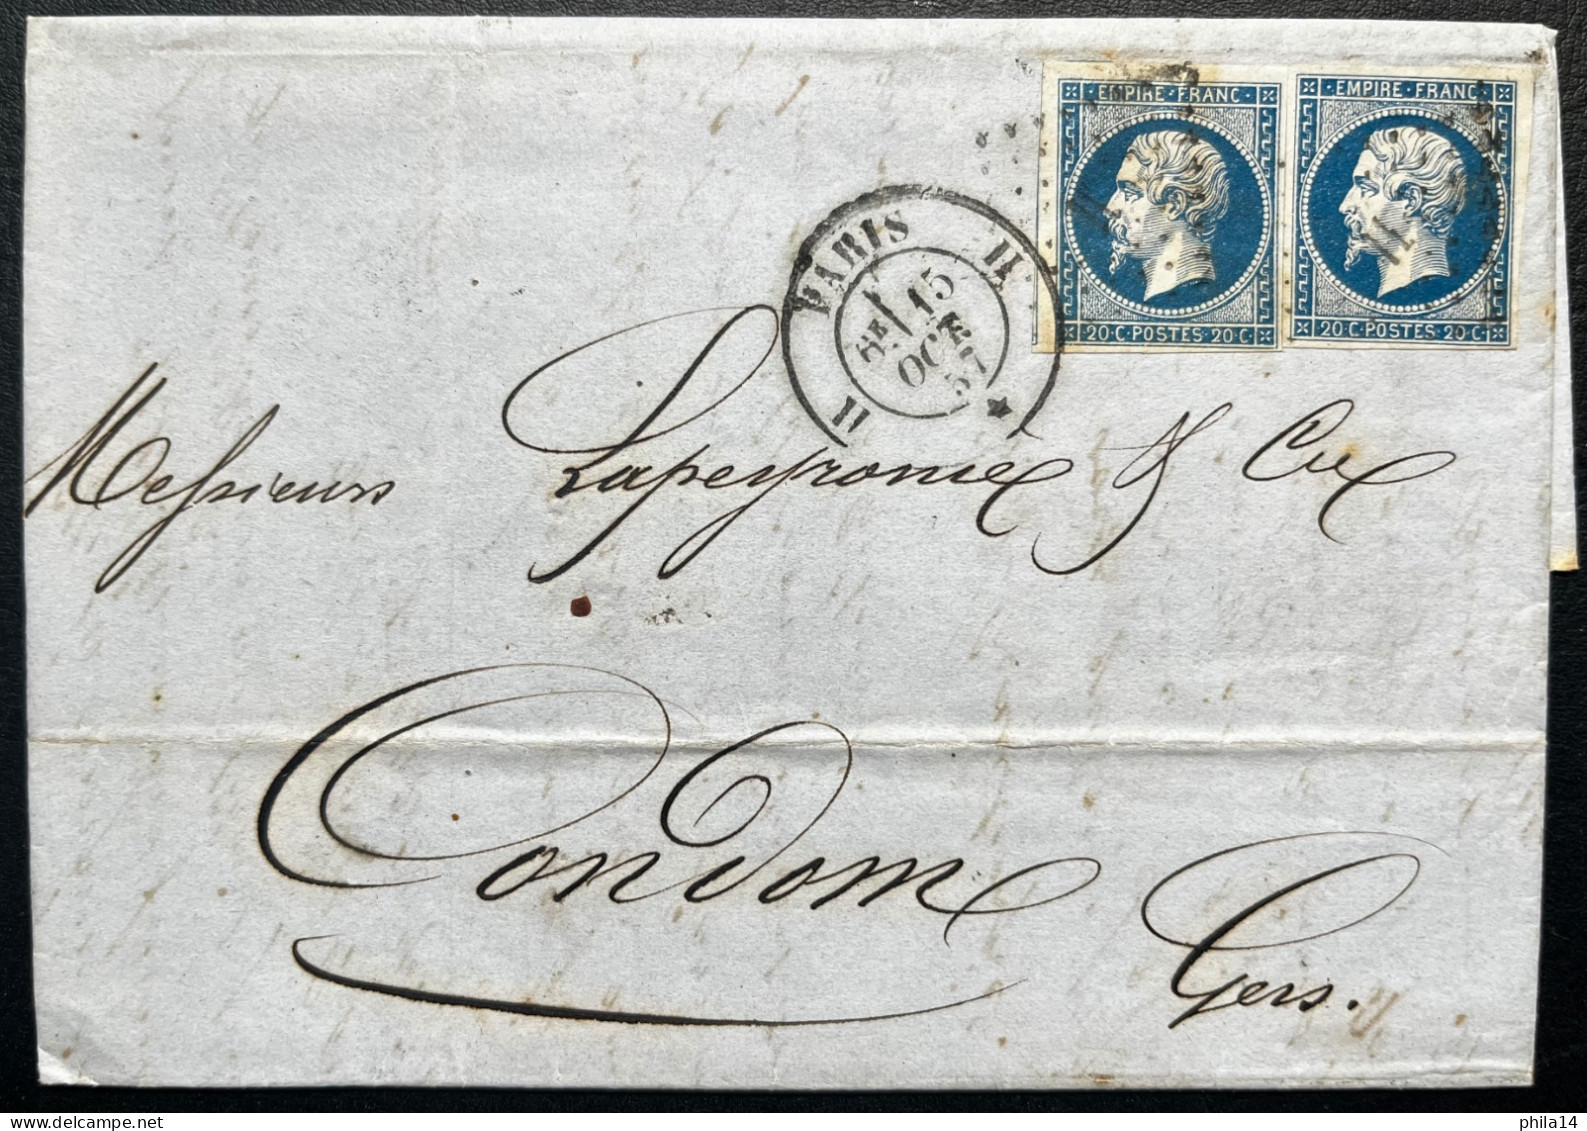 EMPIRE·FRANC
EMPIRE·FRANC
20·C·POSTES·20·C
20·C·POSTES·20·C
PARIS H
6E 15
OCT
57
H
Messieurs Lapeyronie & Cie
Condom
Gers.
phila14